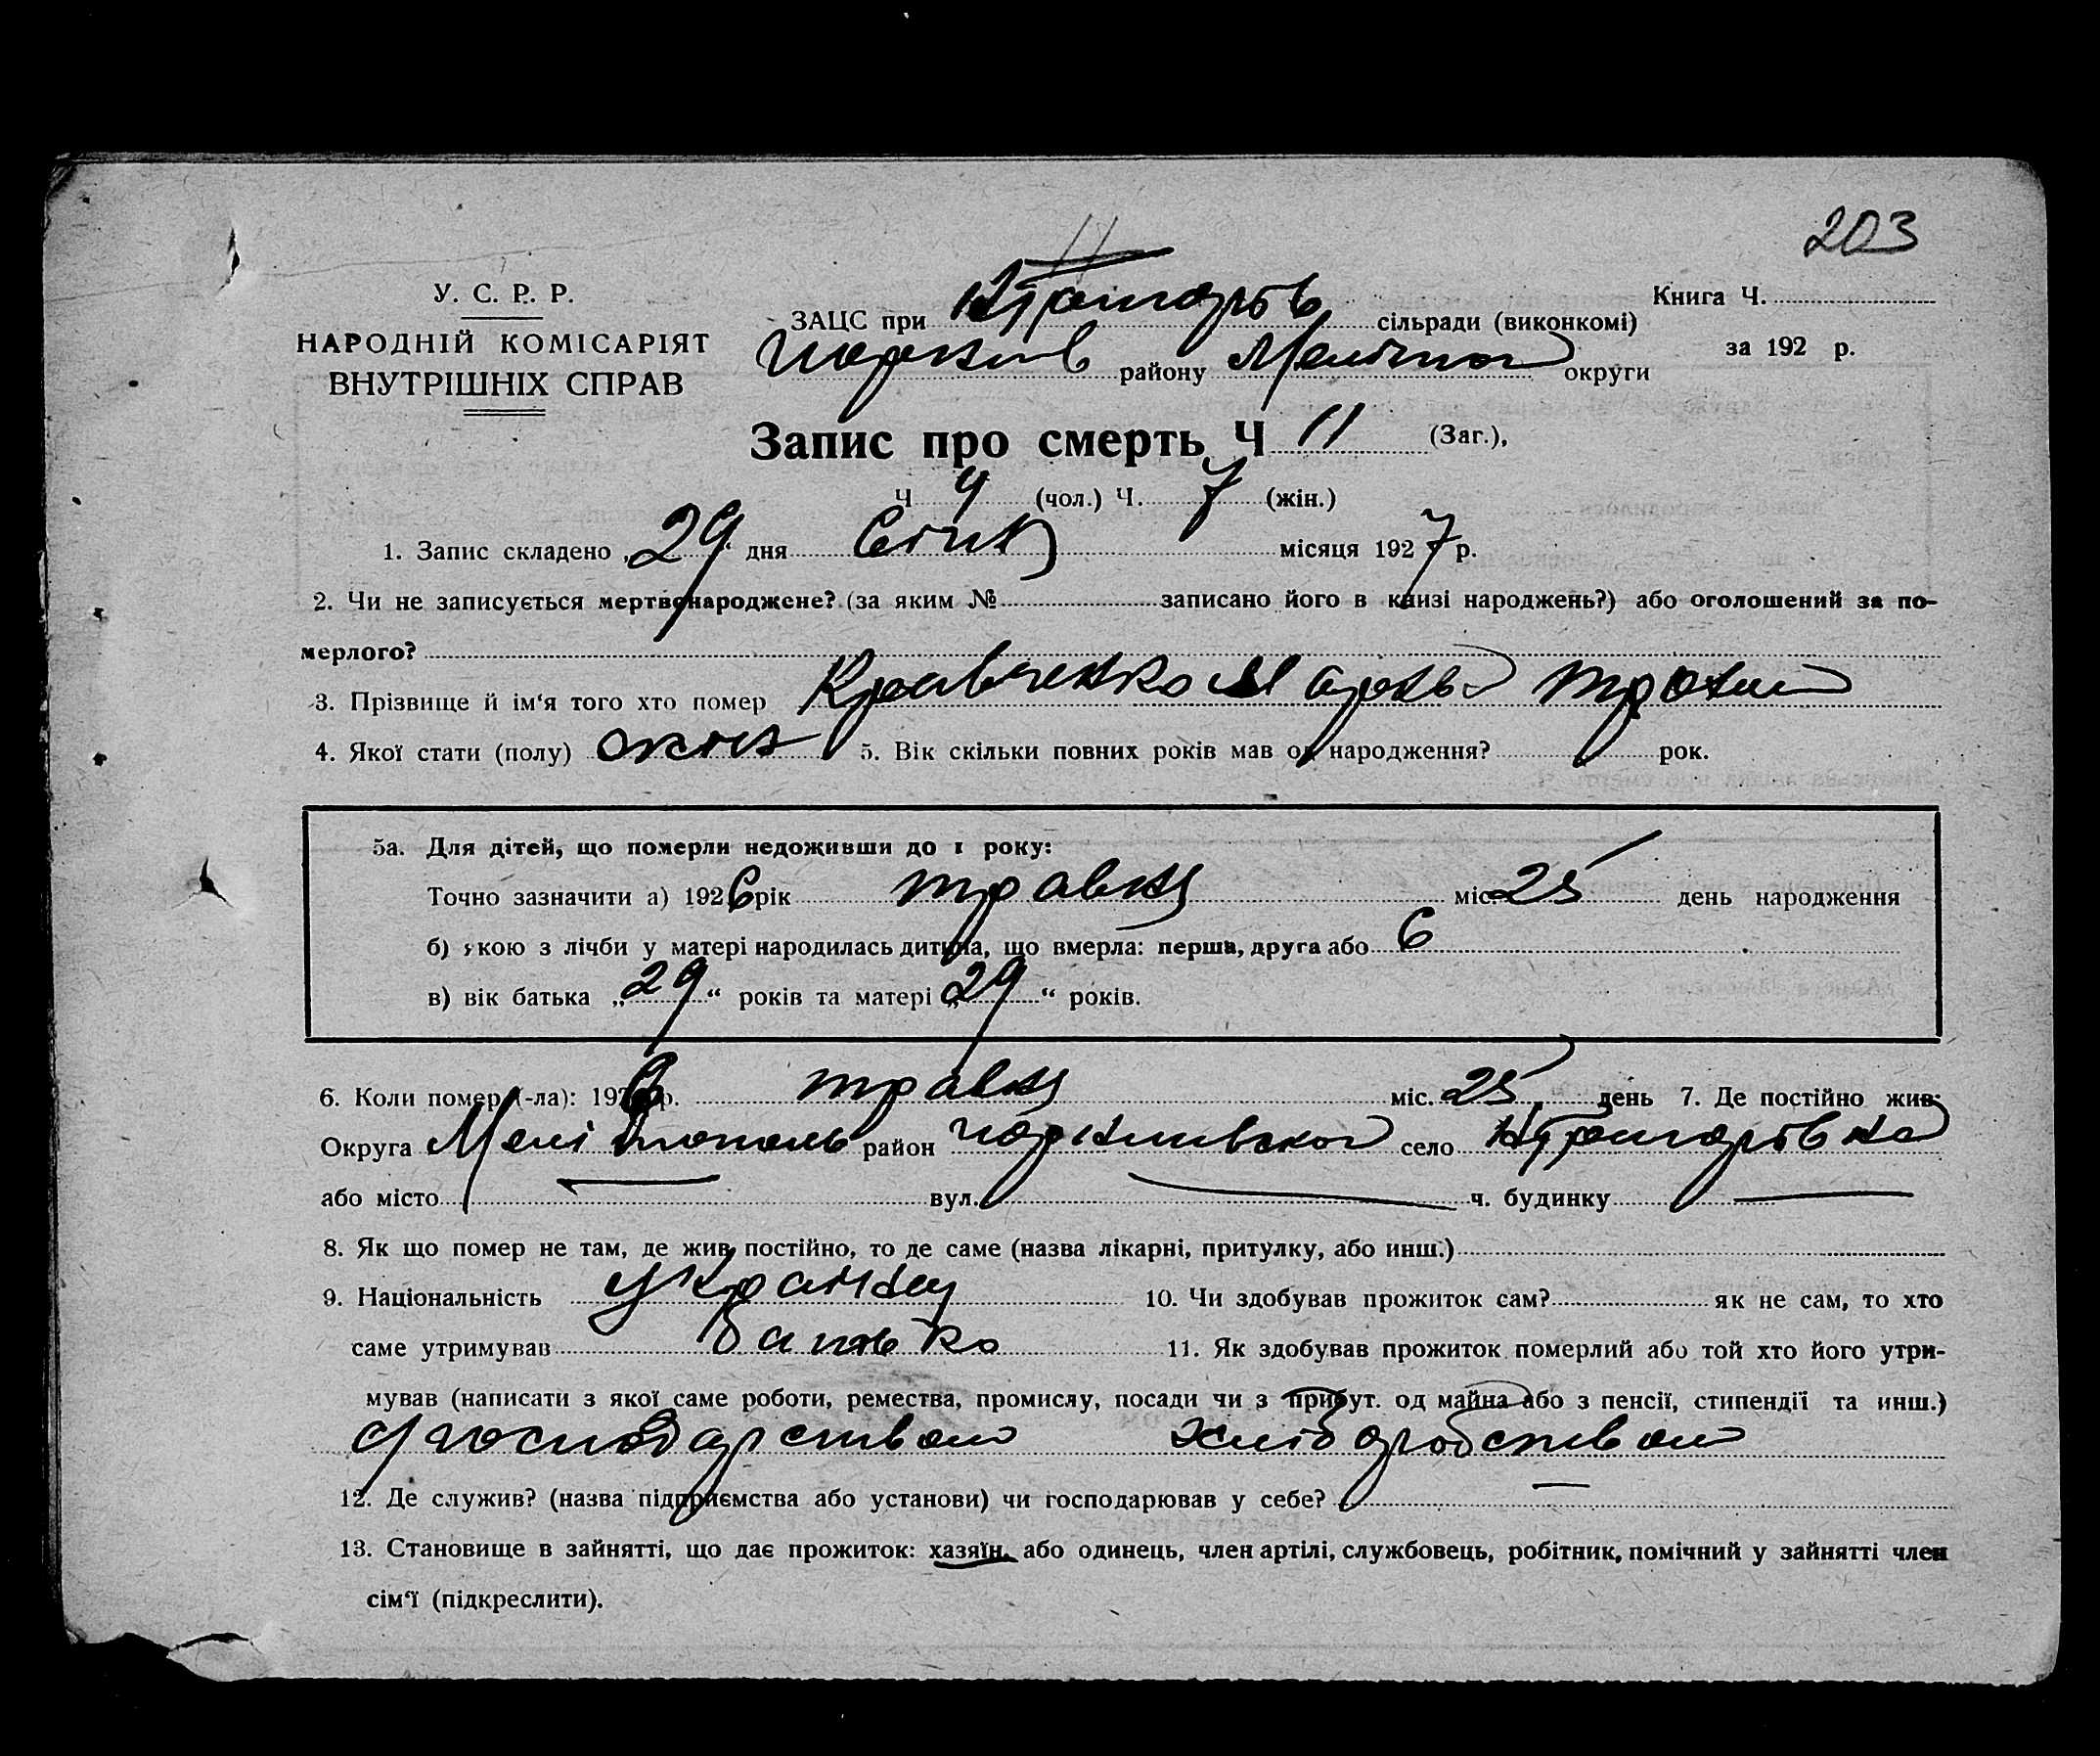 203
У. С. Р. Р.
НАРОДНІЙ КОМІСАРІЯТ
ВНУТРІШНІХ СПРАВ
ЗАЦС при сільради (виконкомі)
району округи
Книга Ч.
за 192 р.
Запис про смерть Ч 11 (Заг.),
Ч 4 (чол.) Ч. 7 (жін.)
1. Запис складено „29“ дня Січня місяця 1927 р.
2. Чи не записується мертвонароджене? (за яким № записано його в книзі народжень?) або оголошений за по-
мерлого?
3. Прізвище й ім‘я того хто помер Кравченко
4. Якої стати (полу) жіноч 5. Вік скільки повних років мав од народження? рок.
5а. Для дітей, що померли недоживши до 1 року:
Точно зазначити а) 1926 рік травня міс 25 день народження
б) якою з лічби у матері народилась дитина, що вмерла: перша, друга або 6
в) вік батька „29“ років та матері „29“ років.
6. Коли помер (-ла): 192 р. травня міс. 25 день 7. Де постійно жив:
Округа Мелітополь район село
або місто — вул. — ч. будинку —
8. Як що помер не там, де жив постійно, то де саме (назва лікарні, притулку, або инш.)
9. Національність 10. Чи здобував прожиток сам? як не сам, то хто
саме утримував батько 11. Як здобував прожиток померлий або той хто його утри-
мував (написати з якої саме роботи, ремества, промислу, посади чи з прибут. од майна або з пенсії, стипендії та инш.)
господарством хліборобством
12. Де служив? (назва підприємства або установи) чи господарював у себе? —
13. Становище в зайнятті, що дає прожиток: хазяїн, або одинець, член артілі, службовець, робітник, помічний у зайнятті член
сім‘ї (підкреслити).